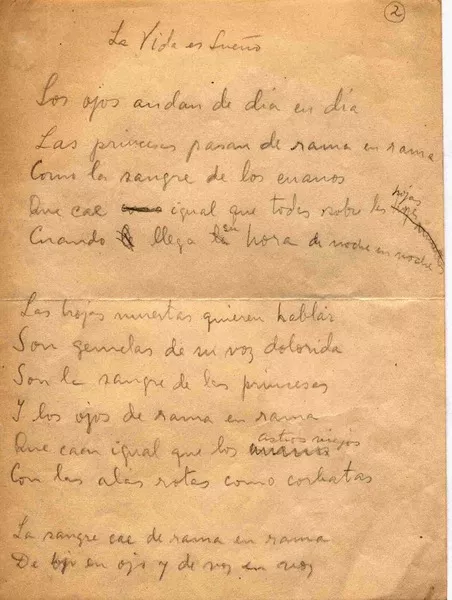 2
La Vida es Sueño
Los ojos andan de día en día
Las princesas pasan de rama en rama
Como la sangre de los enanos
Que cae igual que todas sobre las hojas
Cuando llega su hora de noche en noche
Las hojas muertas quieren hablar
Son gemelas de su voz dolorida
Son la sangre de las princesas
Y los ojos de rama en rama
Que caen igual que los astros viejos
Con las alas rotas como corbatas
La sangre cae de rama en rama
De ojo en ojo y de voz en voz